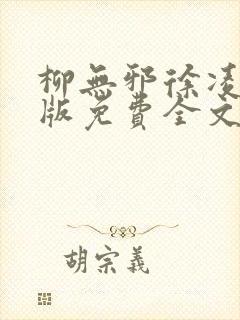 柳無邪徐凌
版免費全文
胡宗義